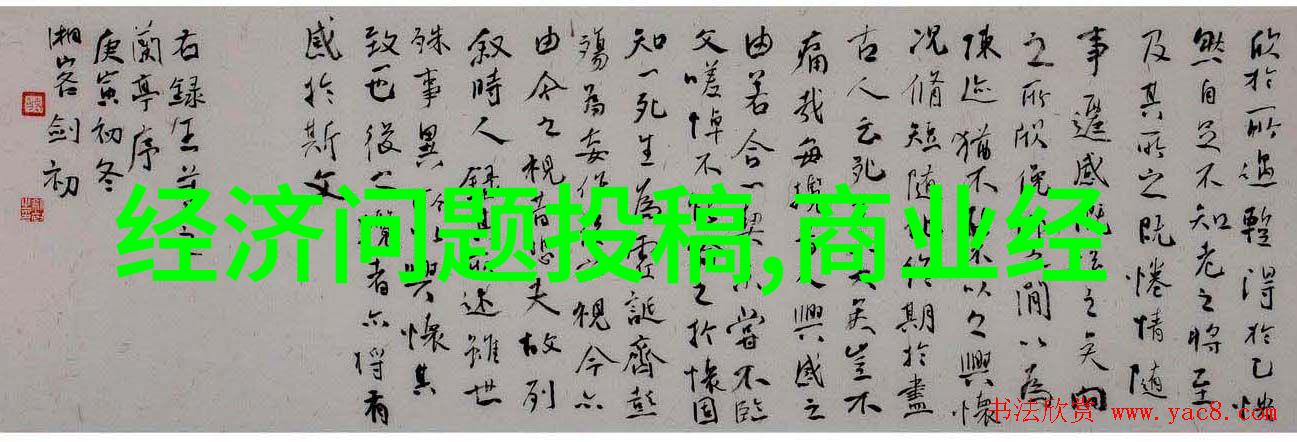 欣於所遇蹔得於己快
然自足不知老之將至
及其所之既惓情隨
事遷感慨係之矣向
之所欣俛仰之間以為
陳迹猶不能不以之興懷
況脩短隨化終期於盡
古人云死生亦大矣豈不
痛哉每攬昔人興感之
由若合一契未嘗不臨
文嗟悼不能喻之於懷固
知一死生為虛誕齊彭
殤為妄作後之視今亦
由今之視昔悲夫故列
敘時人錄其所述雖世
殊事異所以興懷其
致一也後之覽者亦將有
感於斯文
右錄王羲之
蘭亭序
庚寅初冬
湘客劍初
经济问题投稿,商业经
书法欣赏 www.yac8.com